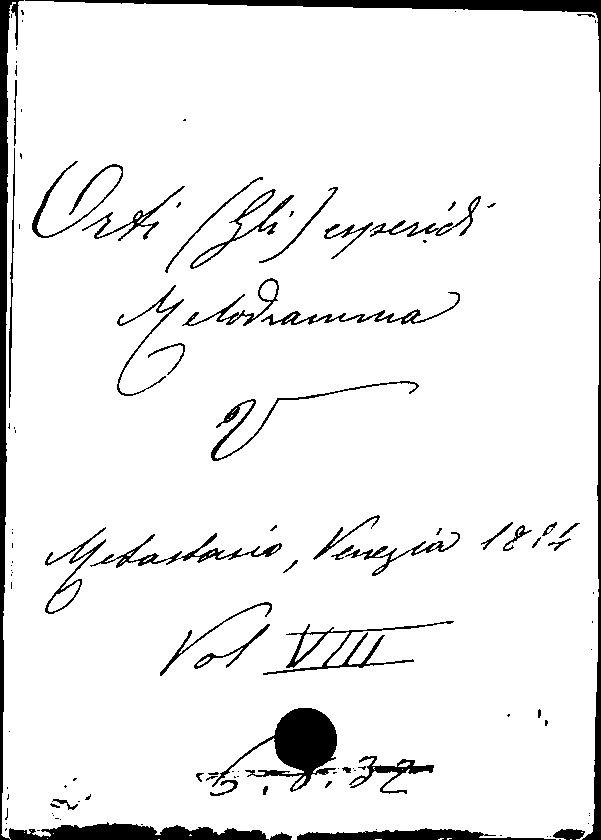 Orti (Gli) esperidi
Melodramma
V
Metastasio, Venezia 1814
Vol VIII
6.8.32